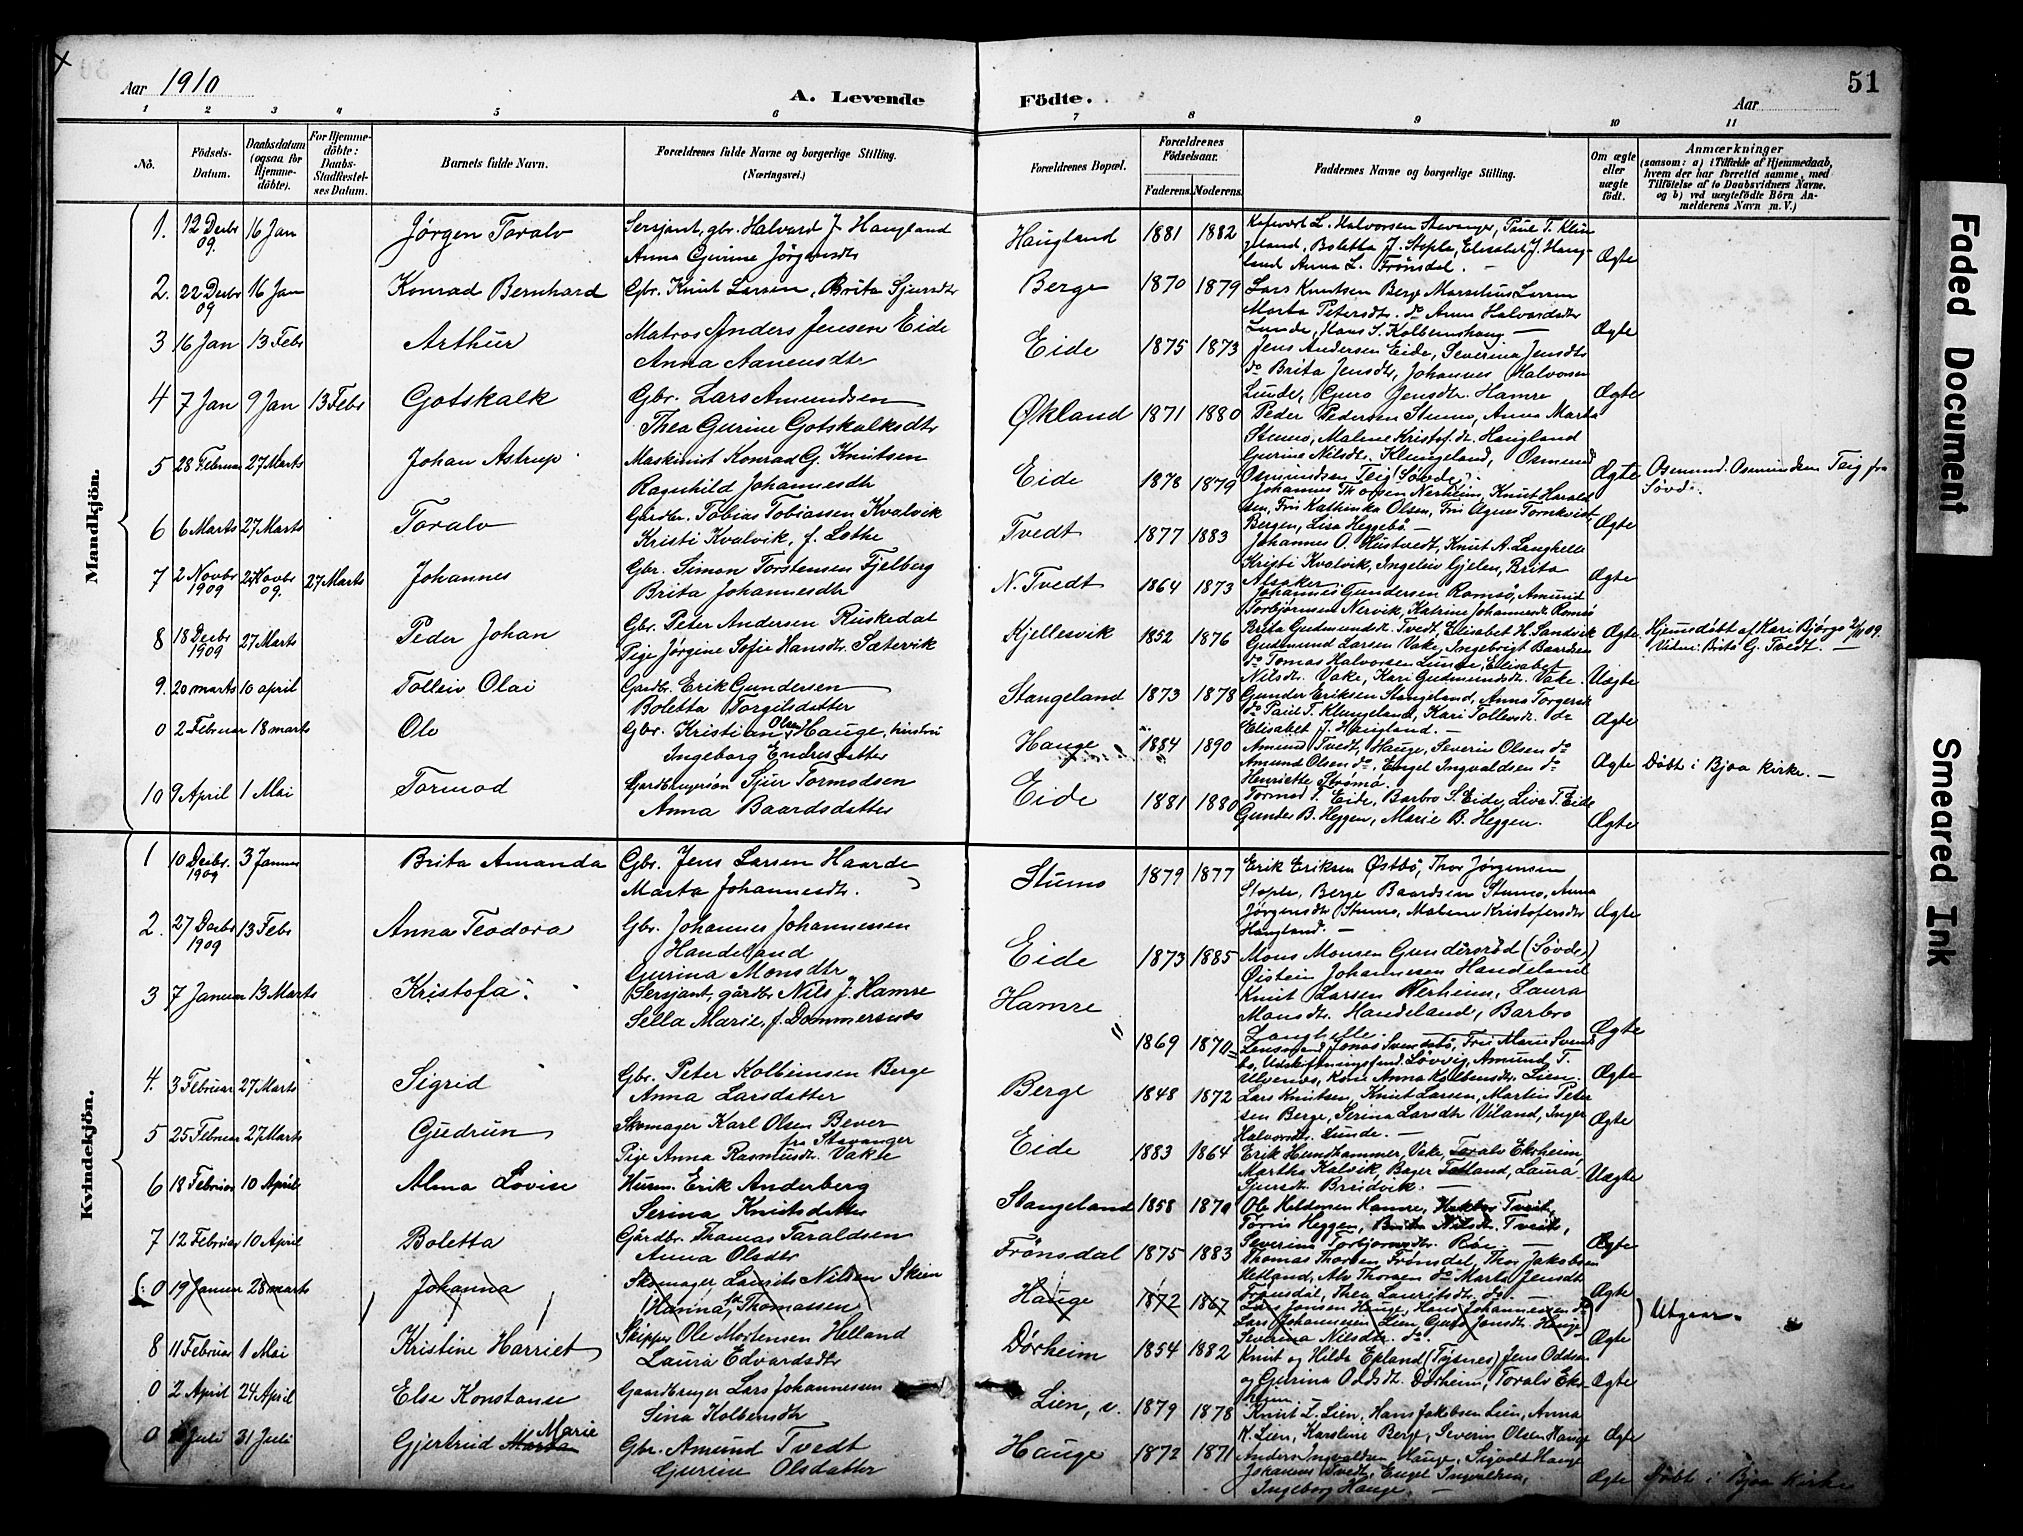 Aar 1910
A. Levende
Födte.
Aar
51
1 2 3 4 5 6 7 8 9 10 11
No.
Födsels-Datum.
Daabsdatum (ogsaa for Hjemme-döbte).
For Hjemme-döbte: Daabs-Stadfæstel-ses Datum.
Barnets fulde Navn.
Forældrenes fulde Navne og borgerlige Stilling. (Næringsvei.)
Forældrenes Bopæl.
Forældrenes Födselsaar.
Faderens. Moderens.
Faddernes Navne og borgerlige Stilling.
Om ægte eller uægte födt.
Anmærkninger
(saasom: a) i Tilfælde af Hjemmedaab, hvem der har forrettet samme, med Tilföielse af to Daabsvidners Navne, og b) ved uægtefödte Börn An-melderens Navn m. V.)
Mandkjön.
1. 12 Decbr 09. 16 Jan Jørgen Toralv
Sersjant, gbr. Halvard J. Haugland
Anna Gjurine Jörgensdtr
Haugland 1881 1882
L. Halvorsen Stavanger, Paul T. Kling-
land, Boletta J. Stople, Elisabet J. Haug-
land Anna L. Frönsdal. —
Ægte
2. 22 Decbr 09 16 Jan Konrad Bernhard
Gbr. Knut Larsen, Brita Sjursdtr
Berge 1870 1879
Lars Knutsen Berge Marselius Larsen
Marta Petersdt. do Anna Halvardsdtr
Lunde, Hans S. Kolbeinshaug —
Ægte
3 16 Jan 13 Febr Arthur
Matros Anders Jensen Eide
Anna Aanensdtr
Eide 1875 1873
Jens Andersen Eide, Severina Jensdtr
do Brita Jensdtr, Johannes Halvorsen
Lunde, Guro Jensdtr. Hamre
Ægte
4 7 Jan 9 Jan 13 Febr Gotskalk
Gbr. Lars Amundsen
Thea Gurine Gotskalksdtr
Økland 1871 1880
Peder Pedersen Stumo, Anna Marta
Stumo, Malene Kristof.dt. Haugland
Gurine Nilsdt. Klungeland, Osmund
Osmundsen Teig (Søvde).
Ægte
Osmund Osmundsen Teig fra
Søvde.
5 28 Februar 27 Marts Johan Astrup
Maskinist Konrad G. Knutsen
Ragnhild Johannesdtr
Eide 1878 1879
Johannes Thorsen Nerheim, Knut Harald
sen, Fru Kathinka Olsen, Fru Agnes Tornkvist,
Bergen, Lisa Heggebö —
Ægte
6 6 Marts 27 Marts Toralv
Gardbr. Tobias Tobiassen Kvalvik
Kristi Kvalvik, f. Lothe
Tvedt 1877 1883
Johannes O. Hustvedt, Knut A. Langhelle
Kristi Kvalvik, Ingeleiv Gjelen, Brita
Alsaker.
Ægte
7 2 Novbr 1909 2 Novbr 09. 27 Marts Johannes
Gbr. Simon Torstensen Fjelberg
Brita Johannesdtr
N. Tvedt 1864 1873
Johannes Gundersen Romsö, Amund
Torbjörnsen Nervik, Katrine Johannesdt. Romsö
Brita Gudmundsdt. Tvedt, Elisabet H. Sandvik
Ægte
Hjemdöbt af Kari Bjørgo 2/11 09.
Vidne: Brita G. Tvedt. —
8 18 Decbr 1909 27 Marts Peder Johan
Gbr. Peter Andersen Ruskedal
Pige Jørgine Sofie Hansdtr. Sætervik
Kjellesvik 1852 1876
Gudmund Larsen Vake, Ingebrigt Baardsen
do Tomas Halvorsen Lunde, Elisabet
Nilsdt. Vake, Kari Gudmundsdt. Vake
Uægte
9. 20 marts 10 april Tolleiv Olai
Gardbr. Erik Gundersen
Boletta Torgilsdatter
Stangeland 1873 1878
Gunder Eriksen Stangeland, Anna Torgersen
do Paul T. Klungeland, Kari Tollevsdt. do
Elisabet J. Haugland. —
Ægte
0 2 Februar 18 marts Ole
Gbr. Kristian Olsen Hauge, hustru
Ingeborg Endresdatter
Hauge 1884 1890
Amund Tvedt, Hauge, Severin Olsen do
Amund Olsen do. Engel Ingvaldsen do
Henriette Strömö.
Ægte
Døbt i Bjoa kirke. —
10 9 April 1 Mai Tormod
Gardbrugersön Sjur Tormodsen
Anna Baardsdatter
Eide 1881 1880
Tormod T. Eide, Barbro S. Eide, Liva T. Eide
Gunder B. Heggen, Marie B. Heggen.
Ægte
Kvindekjön.
1 10 Decbr. 1909 3 Januar Brita Amanda
Gbr. Jens Larsen Haarde
Marta Johannesdt.
Stumo 1879 1877
Erik Eriksen Østbö, Thor Jørgensen
Stople, Berge Baardsen Stumo, Anna
Jørgensdtr Stumo, Malene Kristofersdtr
Haugland. —
Ægte
2. 27 Decbr 1909 13 Febr Anna Teodora
Gbr. Johannes Johannessen
Handeland
Gurina Monsdtr
Eide 1873 1885
Mons Monsen Gundersröd (Søvde)
Øistein Johannesen Handeland
Knut Larsen Nerheim, Laura
Monsdt. Handeland, Barbro
Langhelle.
Ægte
3 7 Januar 13 Marts Kristofa
Sersjant, gårdbr Nils J. Hamre
Sella Marie, f. Dommersnes
Hamre 1869 1870
Lensmand Jonas Svendsbö, Fru Marie Svends
bö, Udskiftningsfmd. Lövvig, Amund T.
Ulvenes, Kone Anna Kolbensdtr. Lien.
Ægte
4. 3 Februar 27 Marts Sigrid
Gbr. Peter Kolbeinsen Berge
Anna Larsdatter
Berge 1848 1872
Lars Knutsen, Knut Larsen, Martin Peter
sen Berge, Serina Larsdtr Viland, Inger
Halvorsdt. Lunde. —
Ægte
5 25 Februar 27 Marts Gudrun
Skomager Karl Olsen Bever
fra Stavanger
Pige Anna Rasmusdt. Vakle
Eide 1883 1864
Erik Hundhammer, Vake, Toralv Ekrheim,
Martha Kalvik, Bager Tatland, Laura
Sjursdt. Breidvik. —
Uægte
6 18 Februar 10 April Alma Lovise
Husm. Erik Anderberg
Serina Knutsdatter
Stangeland 1858 1870
Ole Haldorsen Hamre, Tveit,
Tørris Heggen, Brita Nilsdt. Tveit,
Severine Torbjørnsdtr. Röe. —
Ægte
7 12 Februar 10 April Boletta
Gårdbr. Thomas Taraldsen
Anna Olsdtr
Frönsdal 1875 1883
Thomas Thorsen Frönsdal, Thor Jakobsen
Hetland, Alv Thorsen do Marta Jensdt
Frönsdal, Thea Lauritsdt. do.
Ægte
0 19 Januar 28 marts Johanna
Skomager Laurits Nilsen Skien
Hanna Thomassen
Hauge 1872 1867
Lars Jonsen Hauge, Hans Johannesen do
Lars Johannesen Lien, Guro Jonsdt. Hauge
Severina Nilsdtr. do.
Utgaar.
8 11 Februar 1 Mai Kristine Harriet
Skipper Ole Mortensen Helland
Laura Edvardsdtr
Dörheim 1854 1882
Knut og Hilda Epland (Tysnes) Jens Oddsen
og Gjelrina Oddsdt. Dörheim, Toralv Ekr-
heim.
Ægte
0 2 April 24 April Else Konstanse
Gaardbruger Lars Johannessen
Sina Kolbensdtr
Lien, v. 1879 1878
Knut L. Lien, Hans Jakobsen Lien, Anna
K. Lien, Karoline Berge, Severin Olsen Hauge
Ægte
0 Juli 31 Juli Gjertrud Marta Marie
Gbr. Amund Tvedt
Gjurine Olsdatter
Hauge 1872 1871
Anders Ingvaldsen Hauge, Sigvald Hauge
Johannes Tvedt, Engel Ingvaldsen,
Ingeborg Hauge. —
Ægte
Døbt i Bjoa kirke
Faded Document
Smeared Ink